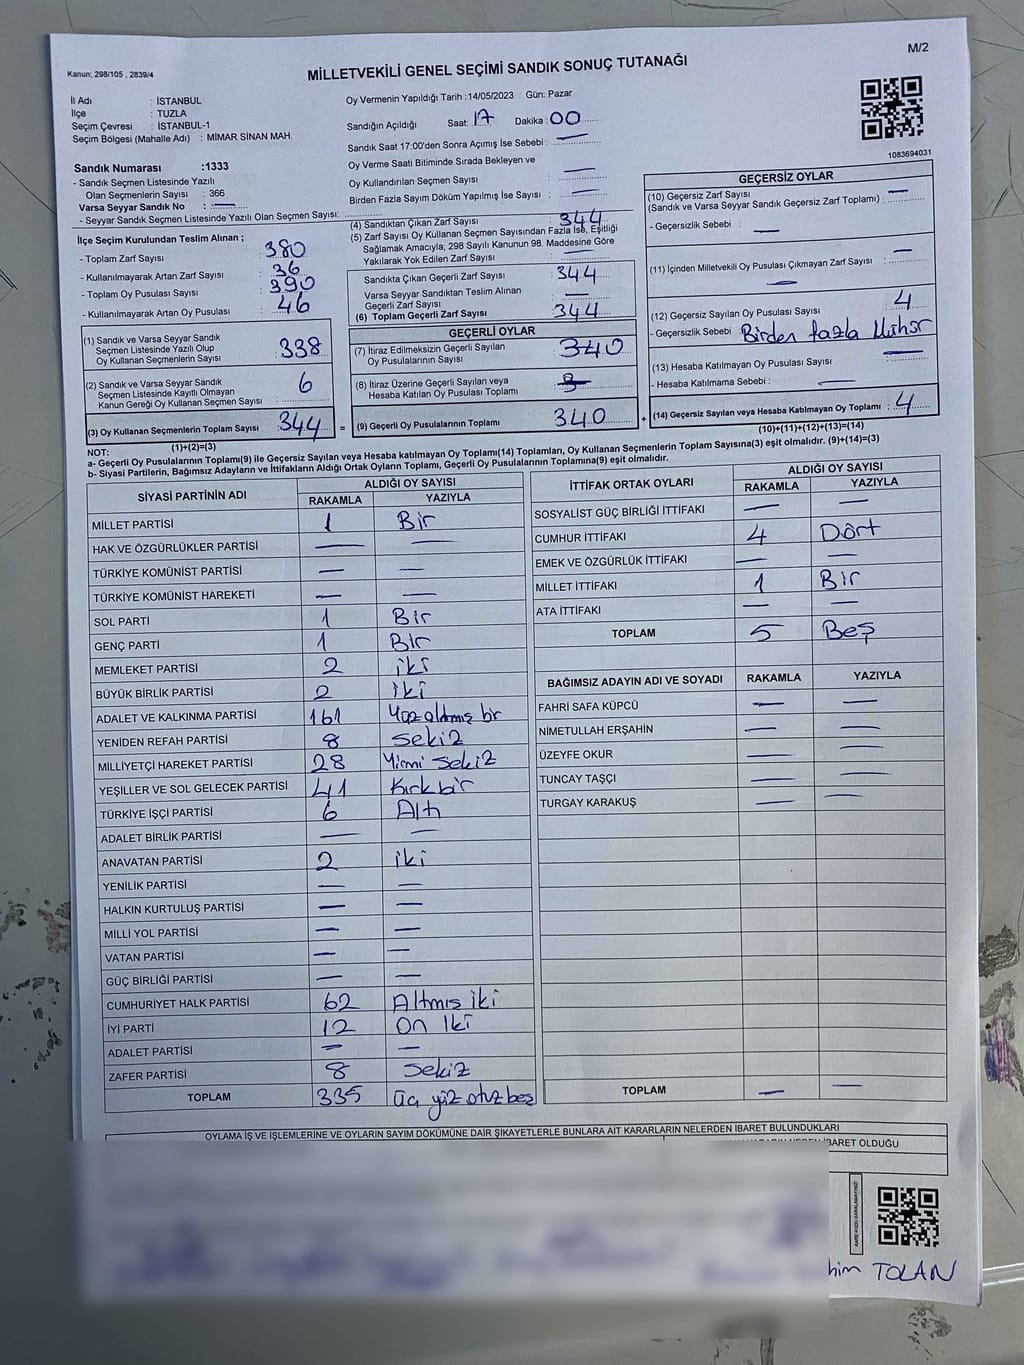 M/2
Kanun: 298/105 , 2839/4
MİLLETVEKİLİ GENEL SEÇİMİ SANDIK SONUÇ TUTANAĞI
İl Adı : İSTANBUL
İlçe : TUZLA
Seçim Çevresi : İSTANBUL-1
Seçim Bölgesi (Mahalle Adı) : MİMAR SİNAN MAH.
Sandık Numarası :1333
- Sandık Seçmen Listesinde Yazılı
Olan Seçmenlerin Sayısı : 366
Varsa Seyyar Sandık No : —
- Seyyar Sandık Seçmen Listesinde Yazılı Olan Seçmen Sayısı:
Oy Vermenin Yapıldığı Tarih :14/05/2023 Gün: Pazar
Sandığın Açıldığı Saat: 17 Dakika: 00
Sandık Saat 17:00'den Sonra Açımış İse Sebebi : —
Oy Verme Saati Bitiminde Sırada Bekleyen ve
Oy Kullandırılan Seçmen Sayısı : —
Birden Fazla Sayım Döküm Yapılmış İse Sayısı : —
1083694031
İlçe Seçim Kurulundan Teslim Alınan ;
- Toplam Zarf Sayısı : 380
- Kullanılmayarak Artan Zarf Sayısı : 36
- Toplam Oy Pusulası Sayısı : 390
- Kullanılmayarak Artan Oy Pusulası : 46
(1) Sandık ve Varsa Seyyar Sandık
Seçmen Listesinde Yazılı Olup
Oy Kullanan Seçmenlerin Sayısı : 338
(2) Sandık ve Varsa Seyyar Sandık
Seçmen Listesinde Kayıtlı Olmayan
Kanun Gereği Oy Kullanan Seçmen Sayısı : 6
(3) Oy Kullanan Seçmenlerin Toplam Sayısı : 344
(1)+(2)=(3)
(4) Sandıktan Çıkan Zarf Sayısı : 344
(5) Zarf Sayısı Oy Kullanan Seçmen Sayısından Fazla İse, Eşitliği
Sağlamak Amacıyla; 298 Sayılı Kanunun 98. Maddesine Göre
Yakılarak Yok Edilen Zarf Sayısı : —
Sandıkta Çıkan Geçerli Zarf Sayısı : 344
Varsa Seyyar Sandıktan Teslim Alınan
Geçerli Zarf Sayısı : —
(6) Toplam Geçerli Zarf Sayısı : 344
GEÇERLİ OYLAR
(7) İtiraz Edilmeksizin Geçerli Sayılan
Oy Pusulalarının Sayısı : 340
(8) İtiraz Üzerine Geçerli Sayılan veya
Hesaba Katılan Oy Pusulası Toplamı :
= (9) Geçerli Oy Pusulalarının Toplamı : 340 +
GEÇERSİZ OYLAR
(10) Geçersiz Zarf Sayısı
(Sandık ve Varsa Seyyar Sandık Geçersiz Zarf Toplamı) : —
- Geçersizlik Sebebi : —
(11) İçinden Milletvekili Oy Pusulası Çıkmayan Zarf Sayısı : —
—
(12) Geçersiz Sayılan Oy Pusulası Sayısı : 4
- Geçersizlik Sebebi : Birden fazla Mühür
(13) Hesaba Katılmayan Oy Pusulası Sayısı : —
- Hesaba Katılmama Sebebi : —
(14) Geçersiz Sayılan veya Hesaba Katılmayan Oy Toplamı : 4
(10)+(11)+(12)+(13)=(14)
NOT:
a- Geçerli Oy Pusulalarının Toplamı(9) ile Geçersiz Sayılan veya Hesaba katılmayan Oy Toplamı(14) Toplamları, Oy Kullanan Seçmenlerin Toplam Sayısına(3) eşit olmalıdır. (9)+(14)=(3)
b- Siyasi Partilerin, Bağımsız Adayların ve İttifakların Aldığı Ortak Oyların Toplamı, Geçerli Oy Pusulalarının Toplamına(9) eşit olmalıdır.
SİYASİ PARTİNİN ADI ALDIĞI OY SAYISI
RAKAMLA YAZIYLA
MİLLET PARTİSİ 1 Bir
HAK VE ÖZGÜRLÜKLER PARTİSİ — —
TÜRKİYE KOMÜNİST PARTİSİ — —
TÜRKİYE KOMÜNİST HAREKETİ — —
SOL PARTİ 1 Bir
GENÇ PARTİ 1 Bir
MEMLEKET PARTİSİ 2 iki
BÜYÜK BİRLİK PARTİSİ 2 iki
ADALET VE KALKINMA PARTİSİ 161 Yüz altmış bir
YENİDEN REFAH PARTİSİ 8 sekiz
MİLLİYETÇİ HAREKET PARTİSİ 28 Yirmi sekiz
YEŞİLLER VE SOL GELECEK PARTİSİ 41 Kırk bir
TÜRKİYE İŞÇİ PARTİSİ 6 Altı
ADALET BİRLİK PARTİSİ — —
ANAVATAN PARTİSİ 2 iki
YENİLİK PARTİSİ — —
HALKIN KURTULUŞ PARTİSİ — —
MİLLİ YOL PARTİSİ — —
VATAN PARTİSİ — —
GÜÇ BİRLİĞİ PARTİSİ — —
CUMHURİYET HALK PARTİSİ 62 Altmış iki
İYİ PARTİ 12 On iki
ADALET PARTİSİ — —
ZAFER PARTİSİ 8 Sekiz
TOPLAM 335 Üç yüz otuz beş
İTTİFAK ORTAK OYLARI ALDIĞI OY SAYISI
RAKAMLA YAZIYLA
SOSYALİST GÜÇ BİRLİĞİ İTTİFAKI — —
CUMHUR İTTİFAKI 4 Dört
EMEK VE ÖZGÜRLÜK İTTİFAKI — —
MİLLET İTTİFAKI 1 Bir
ATA İTTİFAKI — —
TOPLAM 5 Beş
BAĞIMSIZ ADAYIN ADI VE SOYADI RAKAMLA YAZIYLA
FAHRİ SAFA KÜPCÜ — —
NİMETULLAH ERŞAHİN — —
ÜZEYFE OKUR — —
TUNCAY TAŞÇI — —
TURGAY KARAKUŞ — —
TOPLAM — —
OYLAMA İŞ VE İŞLEMLERİNE VE OYLARIN SAYIM DÖKÜMÜNE DAİR ŞİKAYETLERLE BUNLARA AİT KARARLARIN NELERDEN İBARET BULUNDUKLARI
İBARET OLDUĞU
KARE KODU KARALAMAYINIZ!
him TOLAN